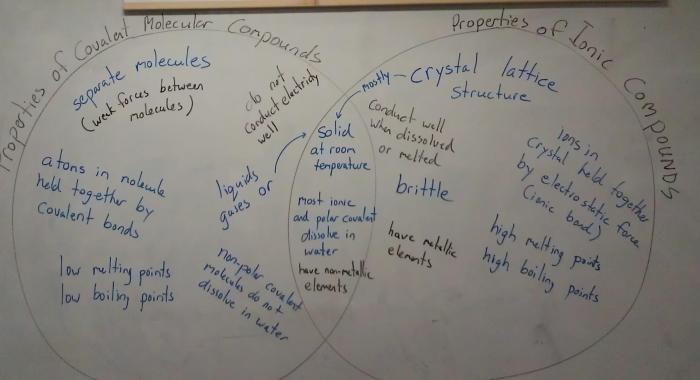 Properties of Covalent Molecular Compounds
separate molecules
(weak forces between
molecules)
do not
conduct electricity
well
atoms in molecule
held together by
covalent bonds
liquids
gases or
low melting points
low boiling points
non-polar covalent
molecules do not
dissolve in water
solid
at room
temperature
most ionic
and polar covalent
dissolve in
water
have non-metallic
elements
Properties of Ionic Compounds
mostly
crystal lattice
structure
conduct well
when dissolved
or melted
brittle
ions in
crystal held together
by electrostatic force
(ionic bond)
have metallic
elements
high melting points
high boiling points